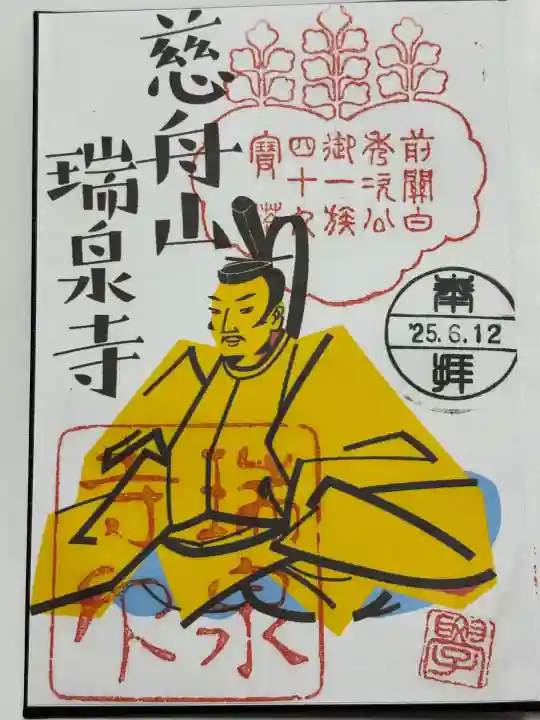 慈舟山
瑞泉寺
前關白
秀次公
御一族
四十九
寶塔
奉
'25.6.12
拝
瑞泉
寺印
學